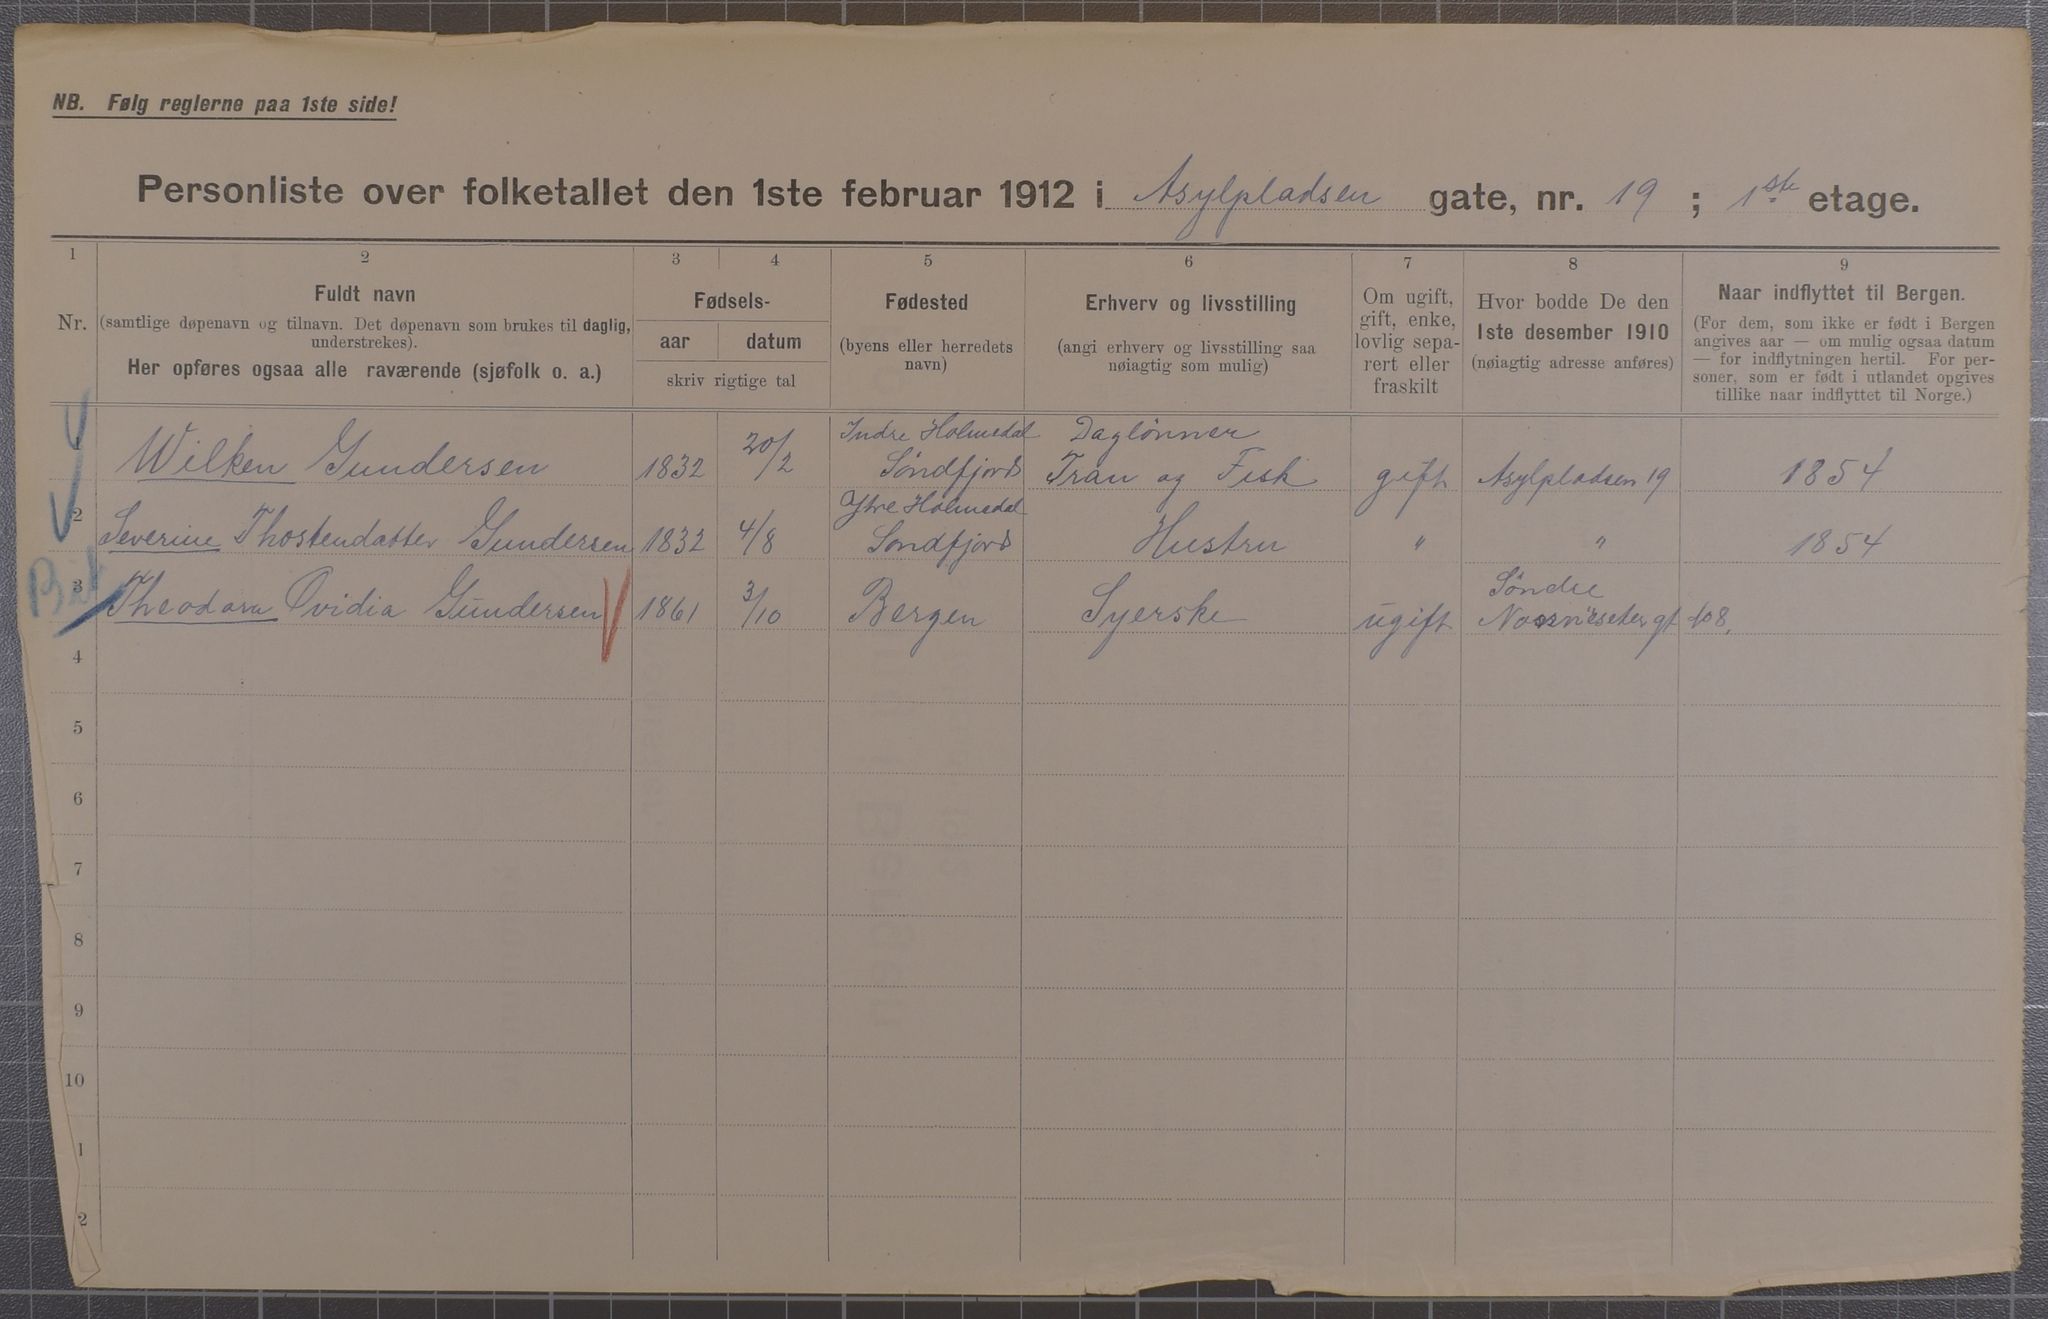 NB. Følg reglerne paa 1ste side!
Personliste over folketallet den 1ste februar 1912 i Asylpladsen gate, nr. 19 ; 1ste etage.
1 2 3 4 5 6 7 8 9
Nr.
Fuldt navn
(samtlige døpenavn og tilnavn. Det døpenavn som brukes til daglig,
understrekes).
Her opføres ogsaa alle raværende (sjøfolk o. a.)
Fødsels-
aar datum
skriv rigtige tal
Fødested
(byens eller herredets
navn)
Erhverv og livsstilling
(angi erhverv og livsstilling saa
nøiagtig som mulig)
Om ugift,
gift, enke,
lovlig sepa-
rert eller
fraskilt
Hvor bodde De den
1ste desember 1910
(nøiagtig adresse anføres)
Naar indflyttet til Bergen.
(For dem, som ikke er født i Bergen
angives aar — om mulig ogsaa datum
— for indflytningen hertil. For per-
soner, som er født i utlandet opgives
tillike naar indflyttet til Norge.)
Indre Holmedal Daglønner
1 Wilken Gundersen 1832 20/2 Søndfjord Tran og Fisk gift Asylpladsen 19 1854
Ytre Holmedal
2 Severine Thostendatter Gundersen 1832 4/8 Søndfjord Hustru " " 1854
Søndre
3 Theodora Ovidia Gundersen 1861 3/10 Bergen Syerske ugift gt 108.
4
5
6
7
8
9
10
1
2